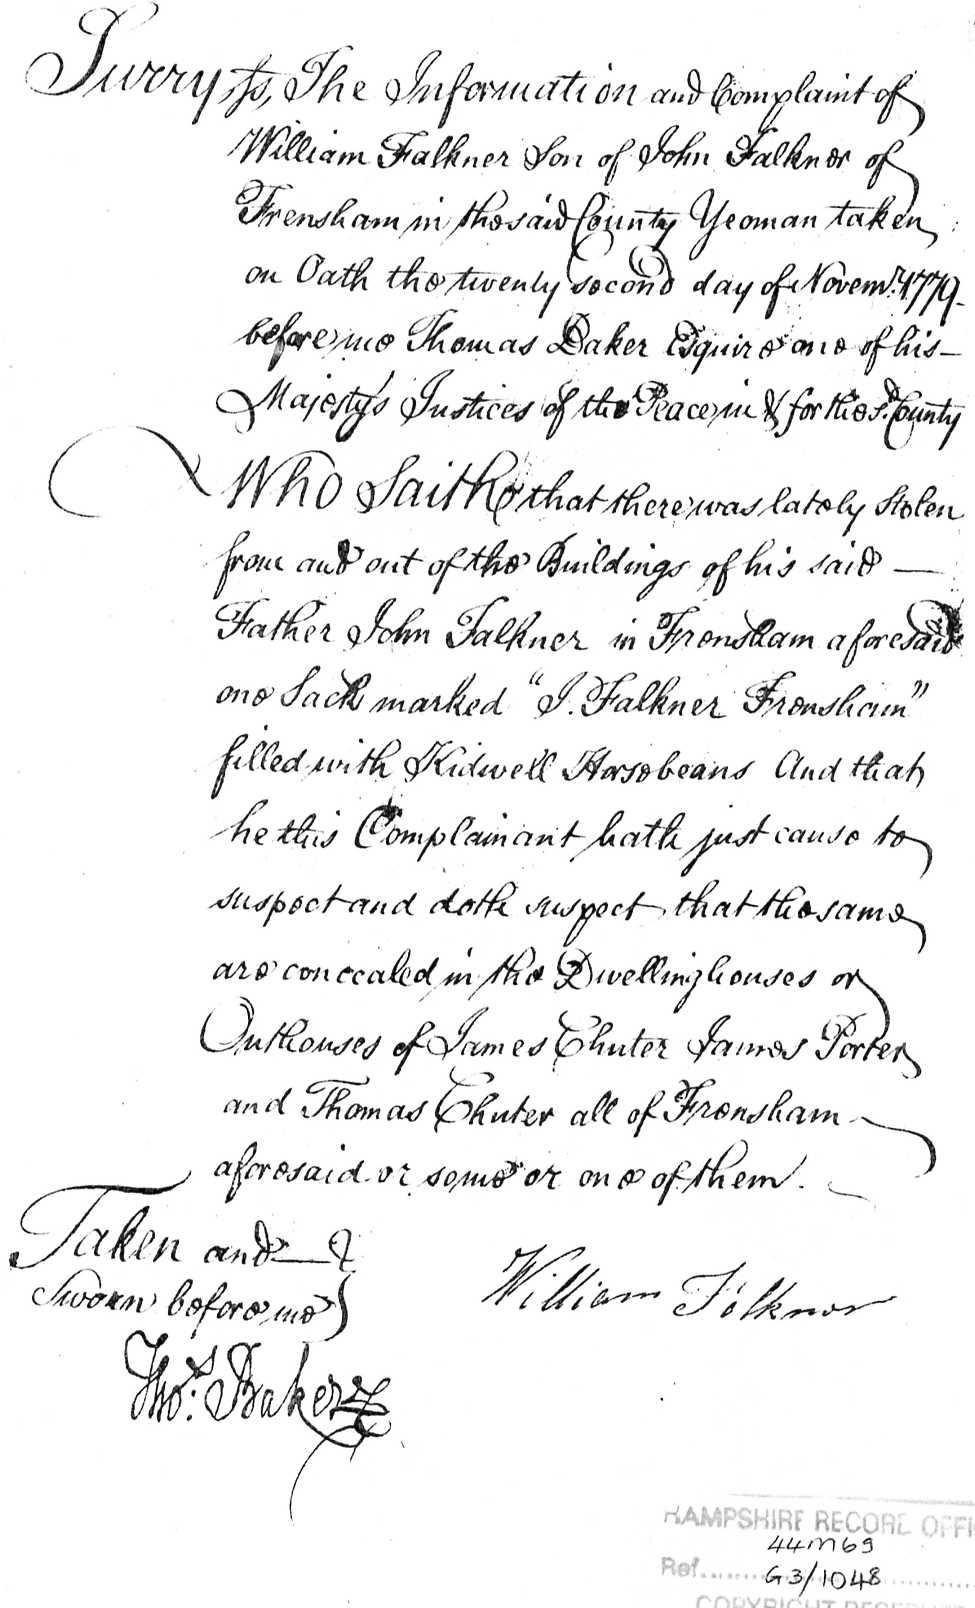 Surry, ss, The Information and Complaint of
William Falkner Son of John Falkner of
Frensham in the said County Yeoman taken
on Oath the twenty second day of Novemr. 1779
before me Thomas Baker Esquire one of his
Majesty's Justices of the Peace in & for the sd. County
Who Saith that there was lately Stolen
from and out of the Buildings of his said
Father John Falkner in Frensham aforesaid
one Sack marked "J. Falkner Frensham"
filled with Kidwell Horsebeans And that
he this Complainant hath just cause to
suspect and doth suspect that the same
are concealed in the Dwellinghouses or
Outhouses of James Chuter James Porter
and Thomas Chuter all of Frensham
aforesaid or some or one of them.
Taken and
Sworn before me
William Folknor
Thos. Baker
HAMPSHIRE RECORD OFFI
44M69
Ref. G3/1048
COPYRIGHT RESERVED